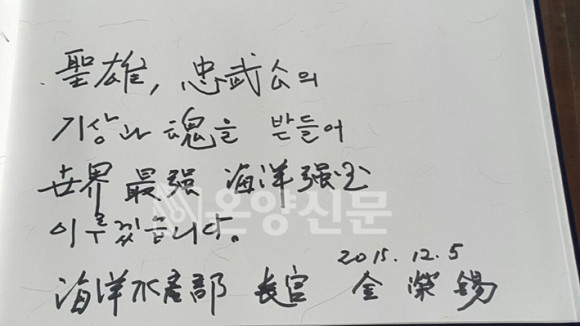 聖雄, 忠武公의
기상과 魂을 받들어
世界 最强 海洋强호
이루겠습니다.
2015. 12. 5
海洋水産部 長官 金榮錫
온양신문